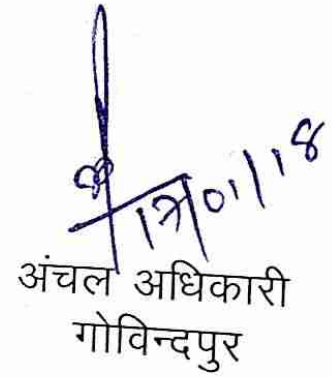 17/01/18
अंचल अधिकारी
गोविन्दपुर